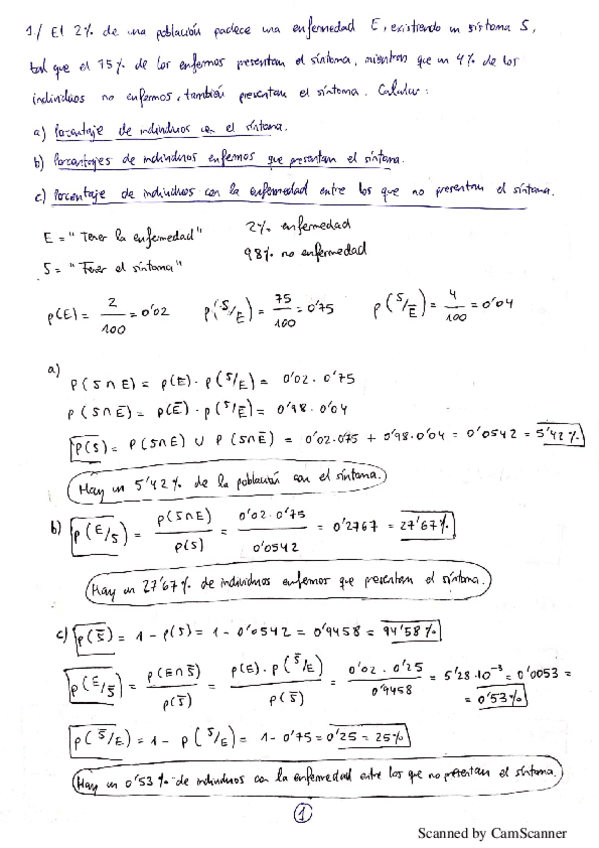 1/ El 2% de una población padece una enfermedad E, existiendo un síntoma S,
tal que el 75% de los enfermos presentan el síntoma, mientras que un 4% de los
individuos no enfermos, también presentan el síntoma. Calcular:
a) Porcentaje de individuos con el síntoma.
b) Porcentajes de individuos enfermos que presentan el síntoma.
c) Porcentaje de individuos con la enfermedad entre los que no presentan el síntoma.
E = "Tener la enfermedad" 2% enfermedad
S = "Tener el síntoma" 98% no enfermedad
p(E) = 2/100 = 0'02 p(S/E) = 75/100 = 0'75 p(S/Ē) = 4/100 = 0'04
a)
p(S∩E) = p(E) · p(S/E) = 0'02 · 0'75
p(S∩Ē) = p(Ē) · p(S/Ē) = 0'98 · 0'04
p(S) = p(S∩E) ∪ p(S∩Ē) = 0'02·0'75 + 0'98·0'04 = 0'0542 = 5'42%
Hay un 5'42% de la población con el síntoma.
b) p(E/S) = p(S∩E)/p(S) = 0'02·0'75/0'0542 = 0'2767 = 27'67%
Hay un 27'67% de individuos enfermos que presentan el síntoma.
c) p(S̄) = 1 - p(S) = 1 - 0'0542 = 0'9458 = 94'58%
p(E/S̄) = p(E∩S̄)/p(S̄) = p(E)·p(S̄/E)/p(S̄) = 0'02·0'25/0'9458 = 5'28·10⁻³ = 0'0053 =
= 0'53%
p(S̄/E) = 1 - p(S/E) = 1 - 0'75 = 0'25 = 25%
Hay un 0'53% de individuos con la enfermedad entre los que no presentan el síntoma.
1
Scanned by CamScanner